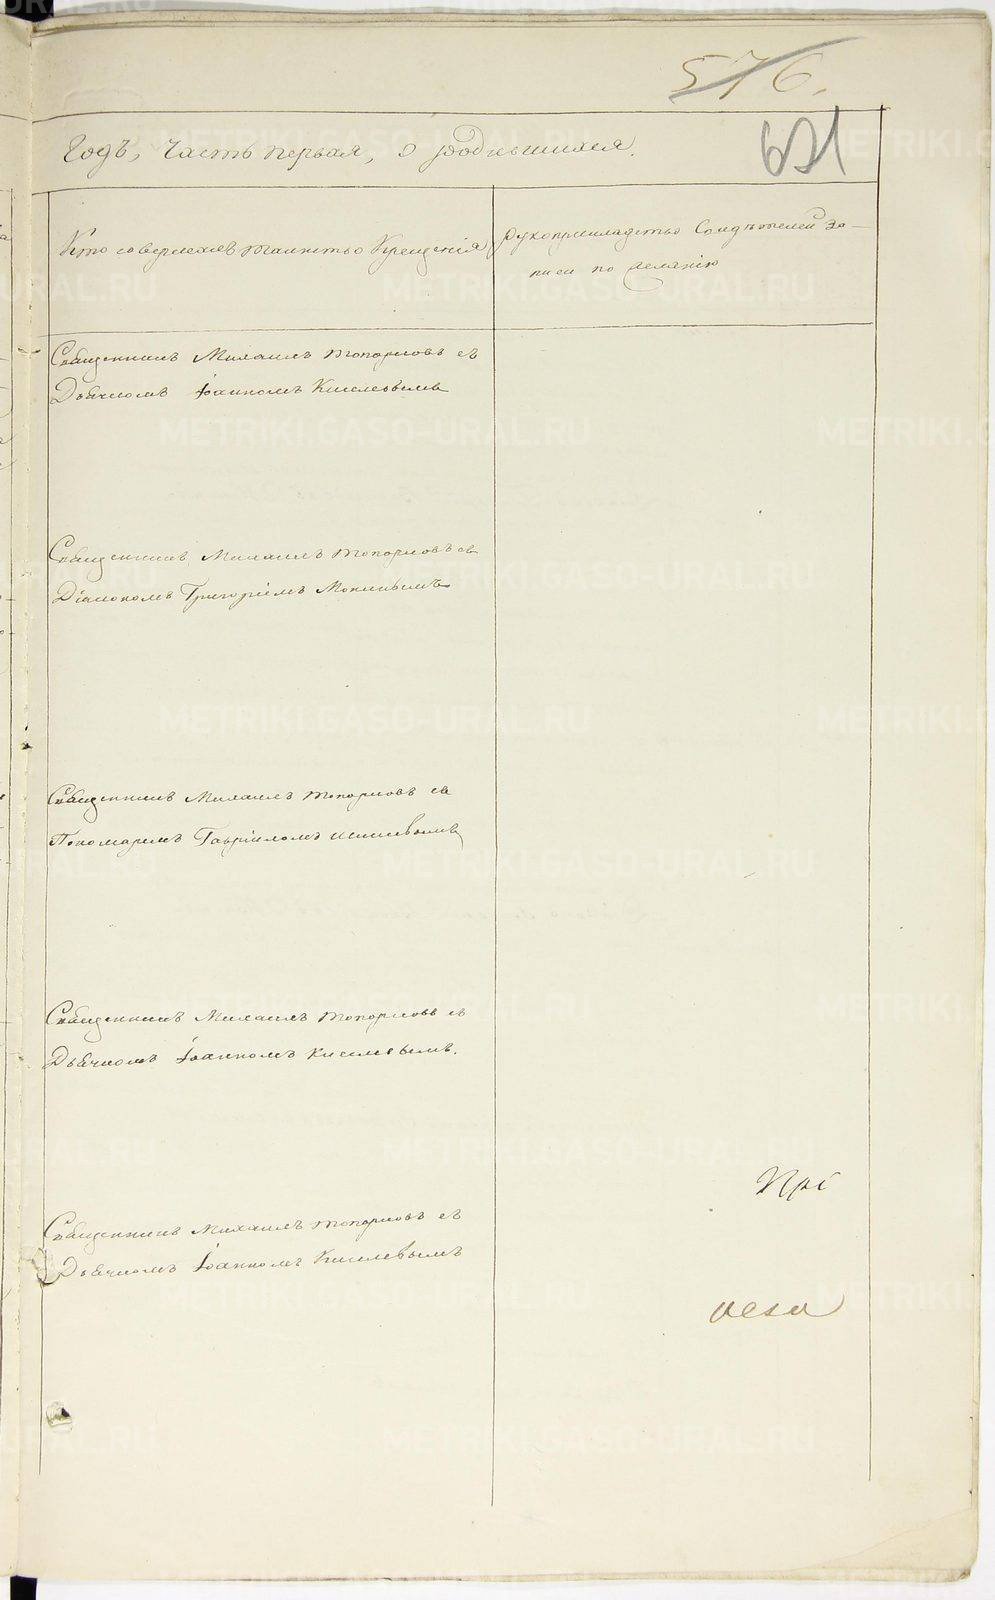 576.
621
Годъ, часть первая, о родившихся.
Кто совершалъ таинство Крещенія
Рукоприкладство Свидѣтелей за-
писи по желанію
Священникъ Михаилъ Топорковъ съ
Дьячкомъ Іоанномъ Киселевымъ
Священникъ Михаилъ Топорковъ съ
Діакономъ Григоріемъ
Священникъ Михаилъ Топорковъ съ
Пономаремъ Гавріиломъ
Священникъ Михаилъ Топорковъ съ
Дьячкомъ Іоанномъ Киселевымъ.
Священникъ Михаилъ Топорковъ съ
Дьячкомъ Іоанномъ Киселевымъ
METRIKI.GASO-URAL.RU